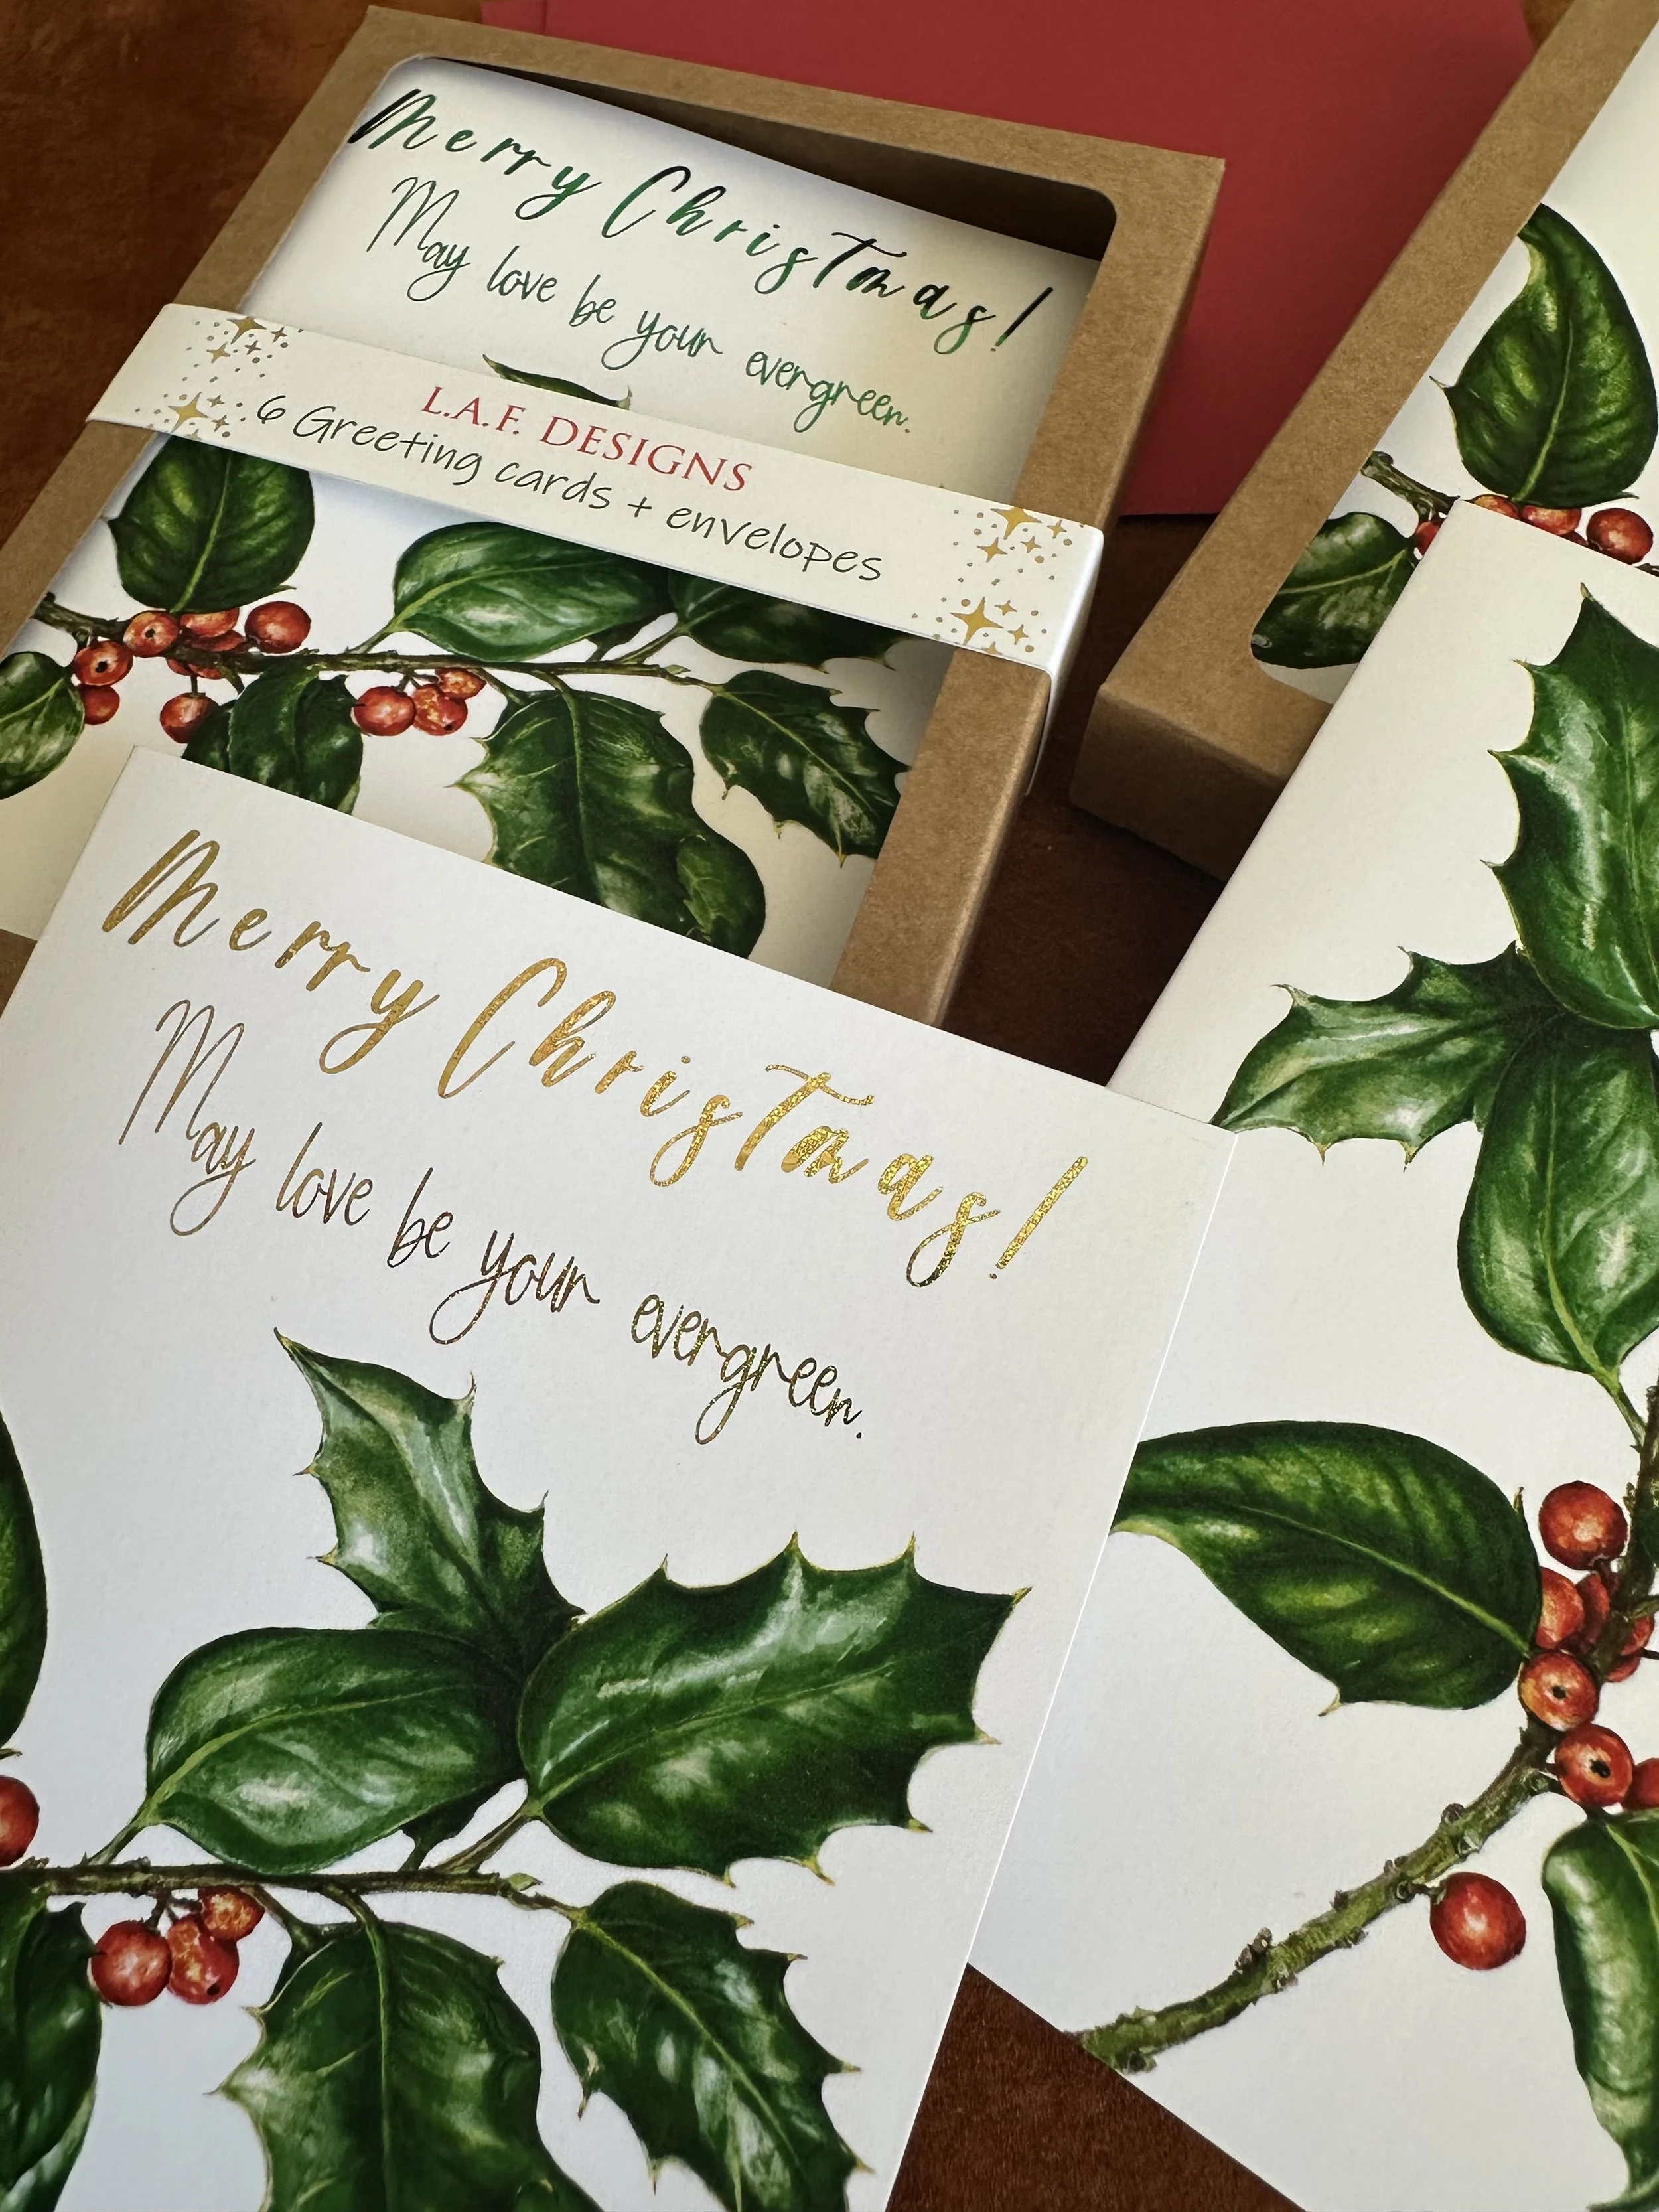 Merry Christmas!
May love be your evergreen.
L.A.F. DESIGNS
6 Greeting cards + envelopes
Merry Christmas!
May love be your evergreen.